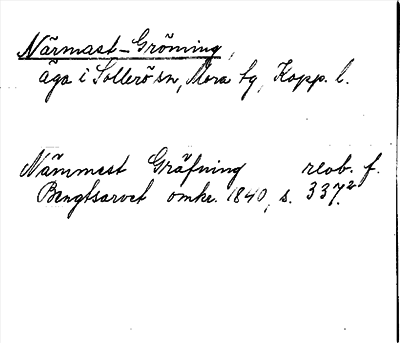 Närmast-Gröning,
äga i Sollerö sn, Mora tg, Kopp. l.
Nämmest Gräfning reob. f.
Bengtsarvet omkr. 1840, s. 337.²